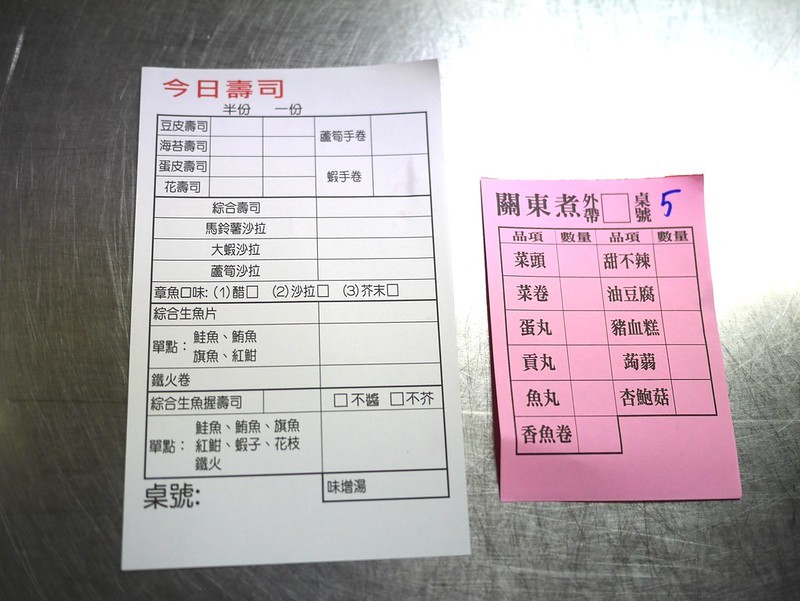 今日壽司
半份 一份
豆皮壽司
海苔壽司
蘆筍手卷
蛋皮壽司
花壽司
蝦手卷
綜合壽司
馬鈴薯沙拉
大蝦沙拉
蘆筍沙拉
章魚口味: (1)醋□ (2)沙拉□ (3)芥末□
綜合生魚片
單點：鮭魚、鮪魚
旗魚、紅魽
鐵火卷
綜合生魚握壽司 □不醬 □不芥
單點：鮭魚、鮪魚、旗魚
紅魽、蝦子、花枝
鐵火
桌號:
味增湯
關東煮 外帶□ 桌號 5
品項 數量 品項 數量
菜頭 甜不辣
菜卷 油豆腐
蛋丸 豬血糕
貢丸 蒟蒻
魚丸 杏鮑菇
香魚卷